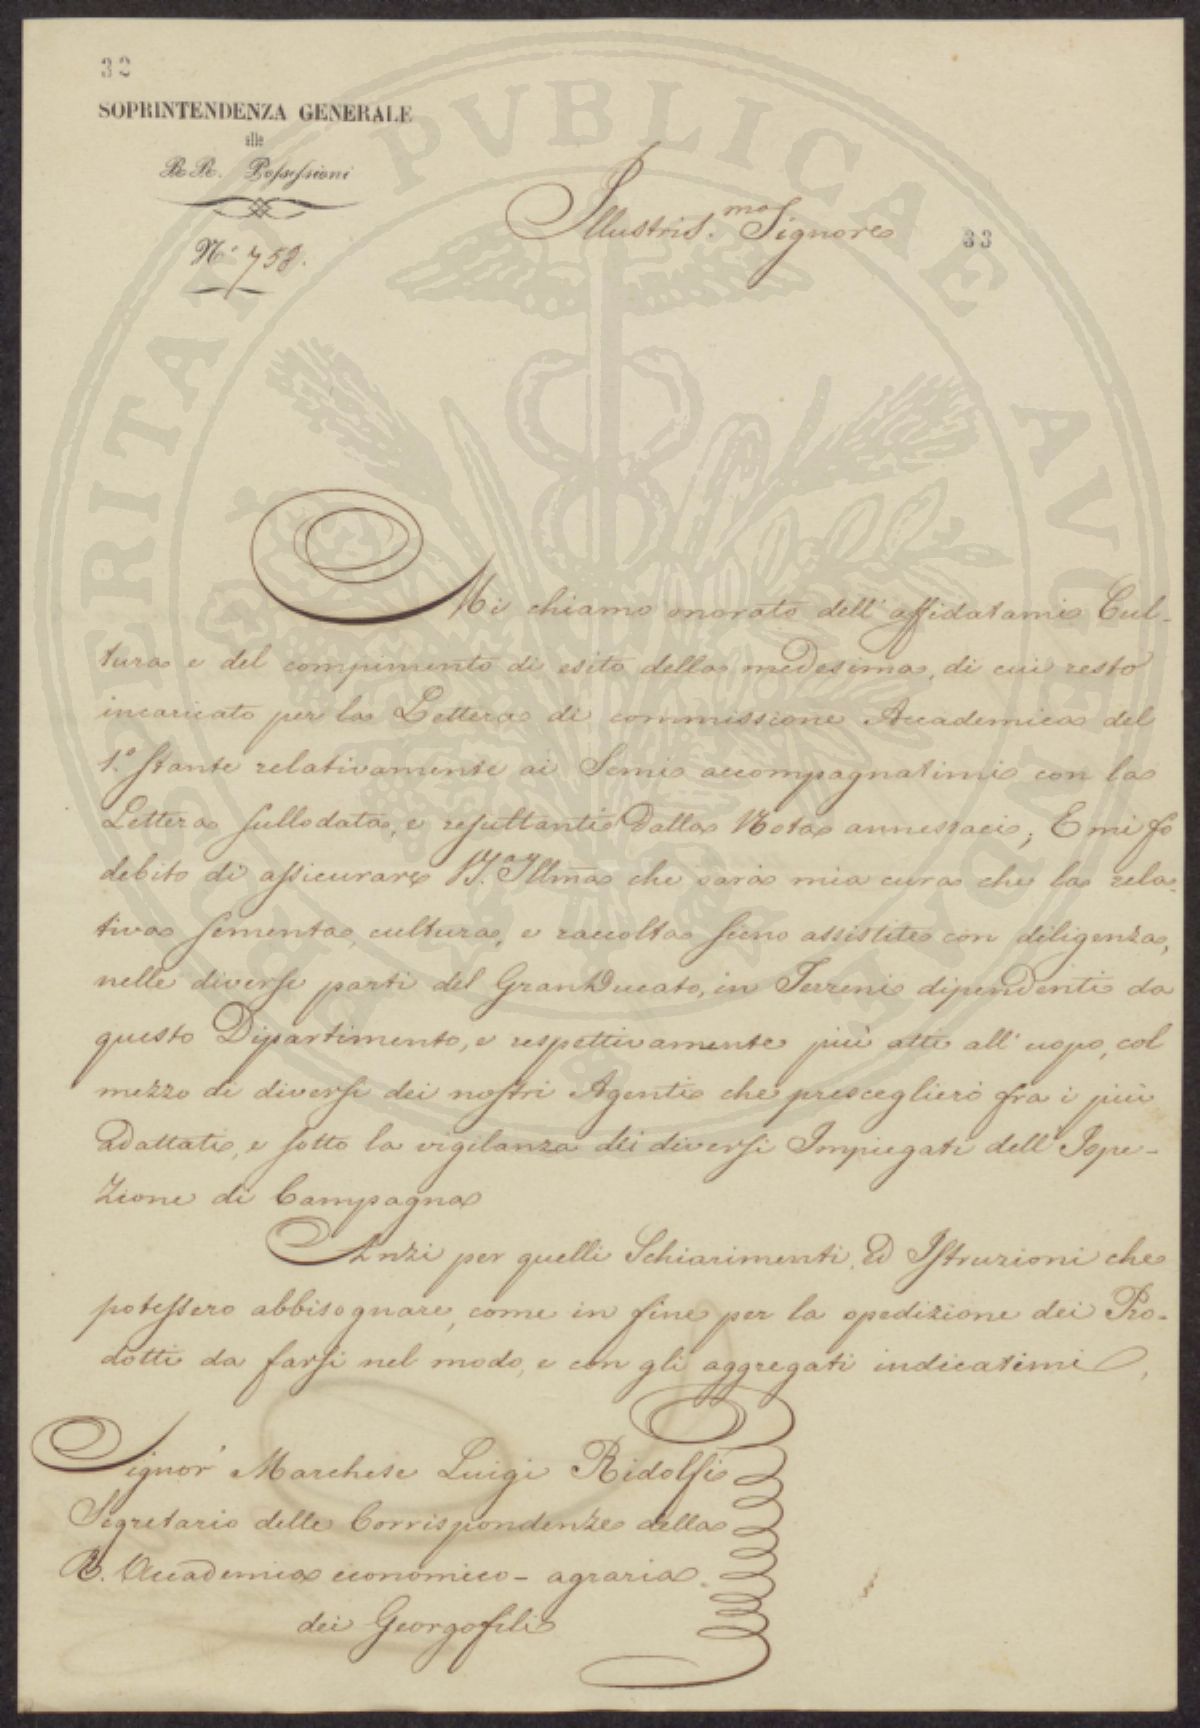 32
SOPRINTENDENZA GENERALE
alle
RR. Possessioni
N.° 758.
Illustris.mo Signore
33
Mi chiamo onorato dell' affidatami Cul-
tura e del compimento di esito della medesima, di cui resto
incaricato per la Lettera di commissione Accademica del
1.° stante relativamente ai Semi accompagnatimi con la
Lettera sullodata, e resultanti dalla Nota annessaci; E mi fo
debito di assicurare V.S. Illma che sarà mia cura che la rela-
tiva sementa, cultura, e raccolta sieno assistite con diligenza,
nelle diverse parti del GranDucato, in Terreni dipendenti da
questo Dipartimento, e respettivamente più atti all' uopo, col
mezzo di diversi dei nostri Agenti che prescegliero fra i più
adattati, e sotto la vigilanza dei diversi Impiegati dell' Ispe-
zione di Campagna
Anzi per quelli Schiarimenti, ed Istruzioni che
potessero abbisognare, come in fine per la spedizione dei Pro-
dotti da farsi nel modo, e con gli aggregati indicatimi,
Signor Marchese Luigi Ridolfi
Segretario delle Corrispondenze della
R. Accademia economico-agraria
dei Georgofili
PROSPERITATI PVBLICAE AVGENDAE